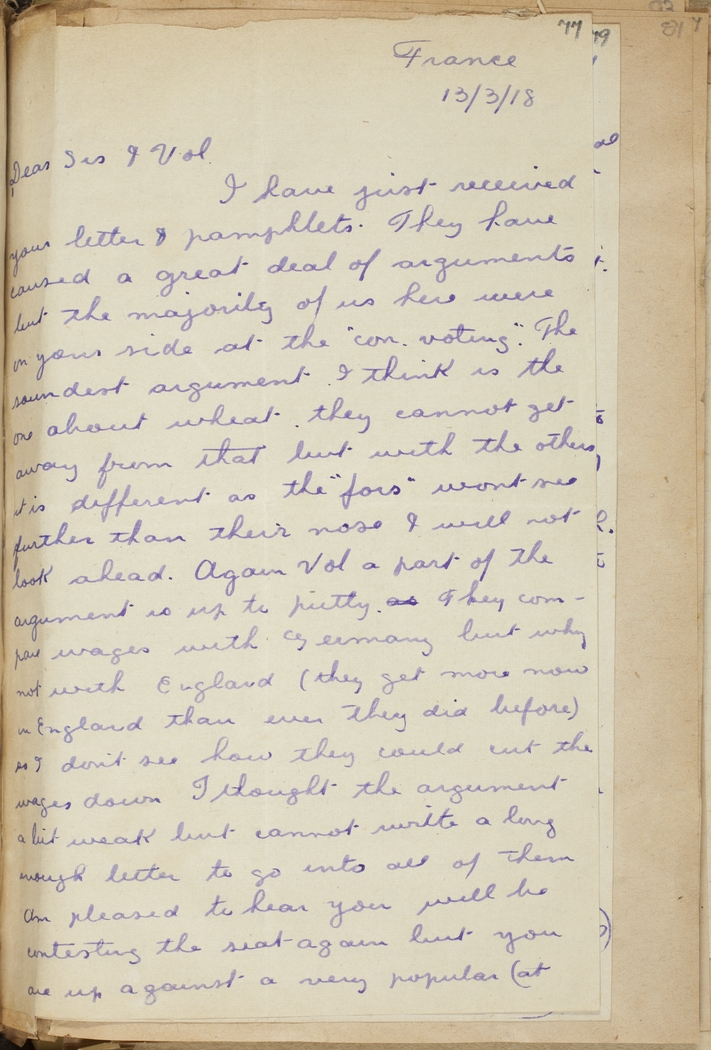 77
France
13/3/18
Dear Sis & Vol
I have just received
your letter & pamphlets. They have
caused a great deal of arguments
but the majority of us here were
on your side at the "con. voting". The
soundest argument I think is the
one about wheat. they cannot get
away from that but with the others
it is different as the "fors" wont see
further than their nose & will not
look ahead. Again Vol a part of the
argument is up to putty. as They com-
pare wages with Germany but why
not with England (they get more now
in England than ever they did before)
as I don't see how they could cut the
wages down I thought the argument
a bit weak but cannot write a long
enough letter to go into all of them
Am pleased to hear you will be
contesting the seat again but you
are up against a very popular (at